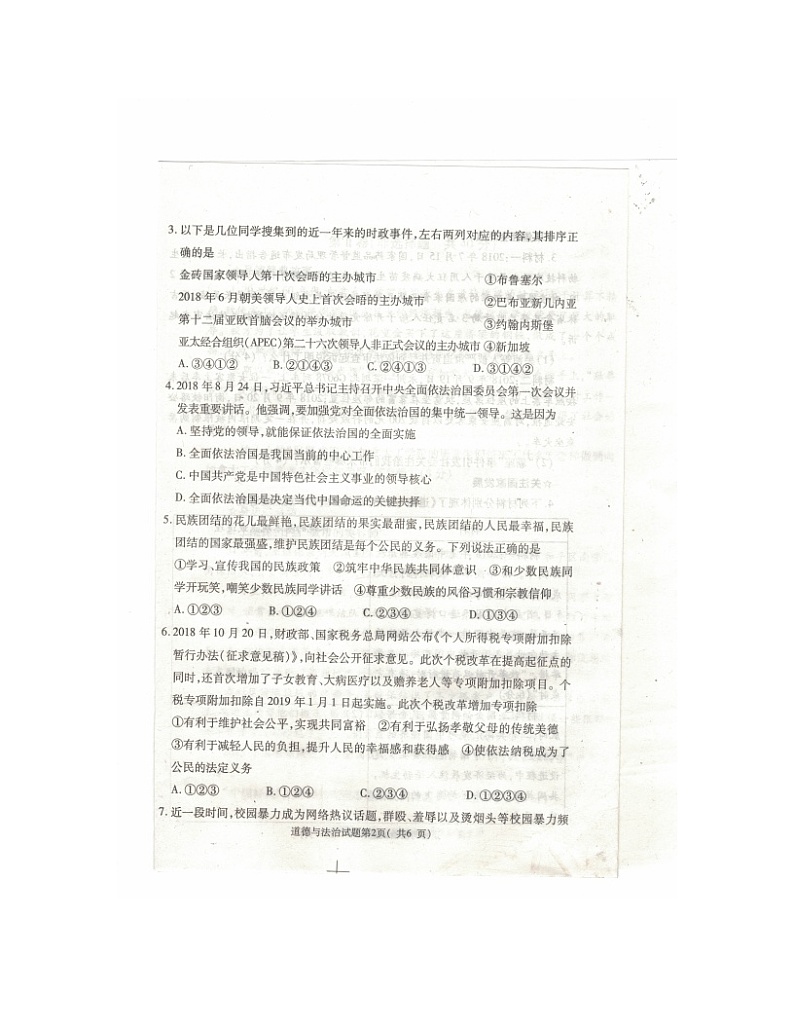 3. 以下是几位同学搜集到的近一年来的时政事件,左右两列对应的内容,其排序正
确的是
金砖国家领导人第十次会晤的主办城市 ①布鲁塞尔
2018 年 6 月朝美领导人史上首次会晤的主办城市 ②巴布亚新几内亚
第十二届亚欧首脑会议的举办城市 ③约翰内斯堡
亚太经合组织(APEC)第二十六次领导人非正式会议的主办城市 ④新加坡
A. ③④①② B. ②①④③ C. ②④①③ D. ③①④②
4. 2018 年 8 月 24 日,习近平总书记主持召开中央全面依法治国委员会第一次会议并
发表重要讲话。他强调,要加强党对全面依法治国的集中统一领导。这是因为
A. 坚持党的领导,就能保证依法治国的全面实施
B. 全面依法治国是我国当前的中心工作
C. 中国共产党是中国特色社会主义事业的领导核心
D. 全面依法治国是决定当代中国命运的关键抉择
5. 民族团结的花儿最鲜艳,民族团结的果实最甜蜜,民族团结的人民最幸福,民族
团结的国家最强盛,维护民族团结是每个公民的义务。下列说法正确的是
①学习、宣传我国的民族政策 ②筑牢中华民族共同体意识 ③和少数民族同
学开玩笑,嘲笑少数民族同学讲话 ④尊重少数民族的风俗习惯和宗教信仰
A. ①②③ B. ①②④ C. ②③④ D. ①③④
6. 2018 年 10 月 20 日,财政部、国家税务总局网站公布《个人所得税专项附加扣除
暂行办法(征求意见稿)》,向社会公开征求意见。此次个税改革在提高起征点的
同时,还首次增加了子女教育、大病医疗以及赡养老人等专项附加扣除项目。个
税专项附加扣除自 2019 年 1 月 1 日起实施。此次个税改革增加专项扣除
①有利于维护社会公平,实现共同富裕 ②有利于弘扬孝敬父母的传统美德
③有利于减轻人民的负担,提升人民的幸福感和获得感 ④使依法纳税成为了
公民的法定义务
A. ①②③ B. ①②④ C. ②③④ D. ①②③④
7. 近一段时间,校园暴力成为网络热议话题,群殴、羞辱以及烫烟头等校园暴力频
道德与法治试题第2页( 共6 页)